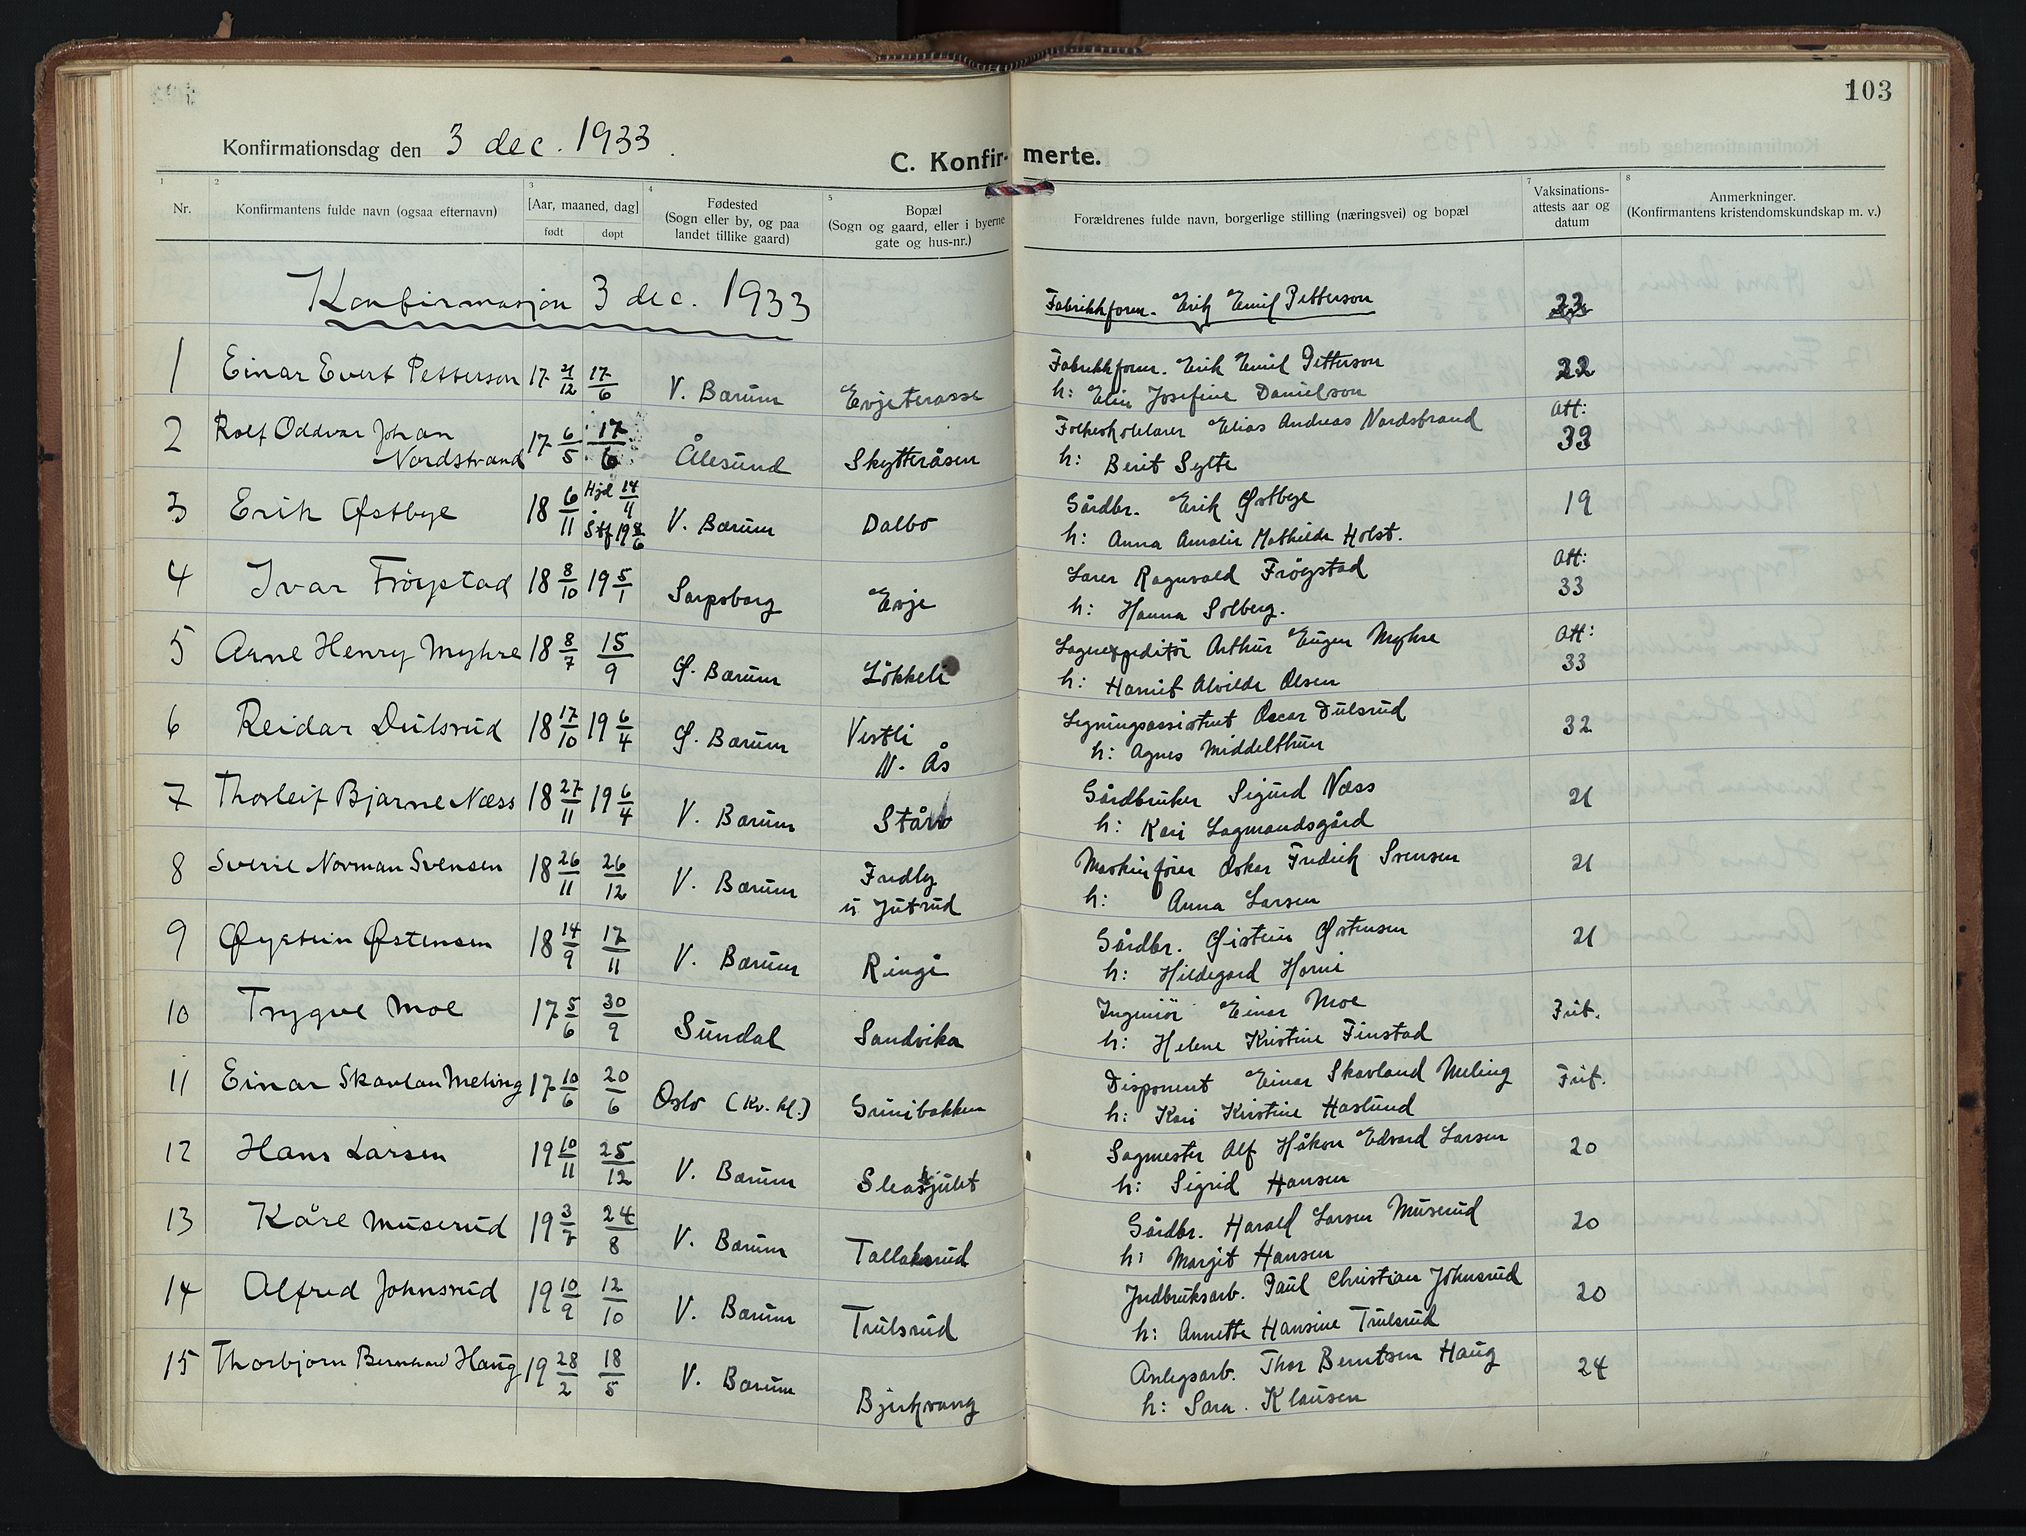 103
Konfirmationsdag den 3 dec. 1933.
C. Konfirmerte.
1 2 3 4 5 7 8
Nr.
Konfirmantens fulde navn (ogsaa efternavn)
[Aar, maaned, dag]
født døpt
Fødested
(Sogn eller by, og paa
landet tillike gaard)
Bopæl
(Sogn og gaard, eller i byerne
gate og hus-nr.)
Forældrenes fulde navn, borgerlige stilling (næringsvei) og bopæl
Vaksinations-
attests aar og
datum
Anmerkninger.
(Konfirmantens kristendomskundskap m. v.)
Konfirmasjon 3 dec. 1933
Fabrikkform. Erik Emil Petterson
1 Einar Evert Petterson 17 21/12 17/6 V. Bærum Evjeterasse Fabrikkform. Erik Emil Petterson 22
h: Elin Josefine Danielson
2 Rolf Oddvar Johan 17 6/5 17/6 Ålesund Skytteråsen Folkeskolelærer Elias Andreas Nordstrand Att:
Nordstrand h: Berit Sylte 33
3 Erik Østbye 18 6/11 Hjd 14/4 V. Bærum Dalbo Gårdbr. Erik Østbye 19
Stf 19 8/6 h: Anna Amalie Mathilde Holst.
4 Ivar Frøystad 18 8/10 19 5/1 Sarpsborg Evje Lærer Ragnvald Frøystad Att:
h: Hanna Solberg. 33
5 Arne Henry Myhre 18 8/7 15/9 Ø. Bærum Løkkeli Lagerexpeditør Arthur Eugen Myhre Att:
h: Harriet Alvilde Olsen 33
6 Reidar Dulsrud 18 17/10 19 6/4 Ø. Bærum Vestli Ligningsassistent Oscar Dulsrud 32
N. Ås h: Agnes Middelthun
7 Thorleif Bjarne Næss 18 27/11 19 6/4 V. Bærum Gårdbruker Sigurd Næss 21
h: Kari Lagmandsgård
8 Sverre Norman Svensen 18 26/11 26/12 V. Bærum Fredly Maskinfører Oskar Fredrik Svensen 21
u Jutrud h: Anna Larsen
9 Øystein Østensen 18 14/9 17/11 V. Bærum Ringi Gårdbr. Øistein Østensen 21
h: Hildegard Horni
10 Trygve Moe 17 5/6 30/9 Sundal Sandvika Ingeniør Einar Moe Frit.
h: Helene Kristine Finstad
11 Einar Skavlan Meling 17 10/6 20/6 Oslo (Kv. kl.) Grinibakken Disponent Einar Skavland Meling Frit.
h: Kari Kristine Haslund
12 Hans Larsen 19 10/11 25/12 V. Bærum Sagmester Alf Håkon Edvard Larsen 20
h: Sigrid Hansen
13 Kåre Muserud 19 3/7 24/8 V. Bærum Tallaksrud Gårdbr. Harald Larsen Muserud 20
h: Margit Hansen
14 Alfred Johnsrud 19 10/9 12/10 V. Bærum Trulsrud Jndbruksarb. Paul Christian Johnsrud 20
h: Annette Hansine Trulsrud
15 Thorbjørn Bernhard Haug 19 28/2 18/5 V. Bærum Bjerkvang Anlegsarb. Thor Berntsen Haug 24
h: Sara. Klausen